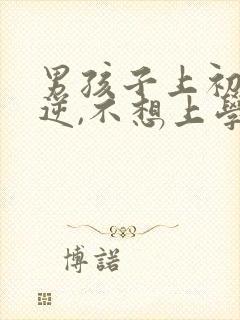 男孩子上初
逆,不想上學
博諾